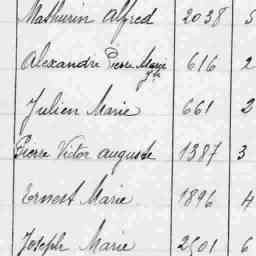 Mathurin Alfred 2038 5
Alexandre Pierre Marie 616 2
Julien Marie 661 2
Pierre Victor auguste 1387 3
Ernest Marie 1896 4
Joseph Marie 2501 6